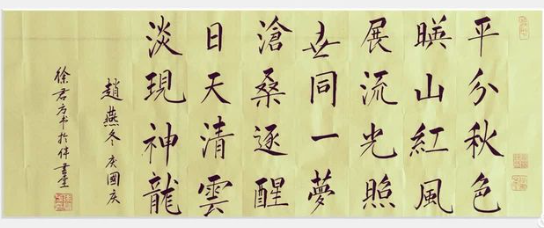 平分秋色
暎山紅風
展流光照
世同一夢
滄桑逐醒
日天清雲
淡現神龍
趙燕冬庚國庆
徐君方书於伴書堂